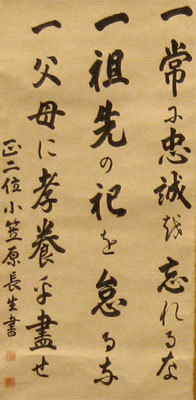 一常に忠誠を忘れるな
一祖先の祀を怠るな
一父母に孝養を盡せ
正二位小笠原長生書